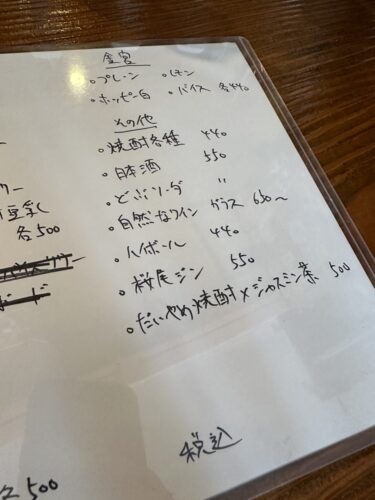 金宮
・プレーン ・レモン
・ホッピー白 ・バイス 各440
その他
・焼酎各種 440
・日本酒 550
・どぶソーダ 〃
・自然なワイン グラス 650〜
・ハイボール 440
・桜尾ジン 550
・だいやめ焼酎×ジャスミン茶 500
豆乳
各500
税込
500